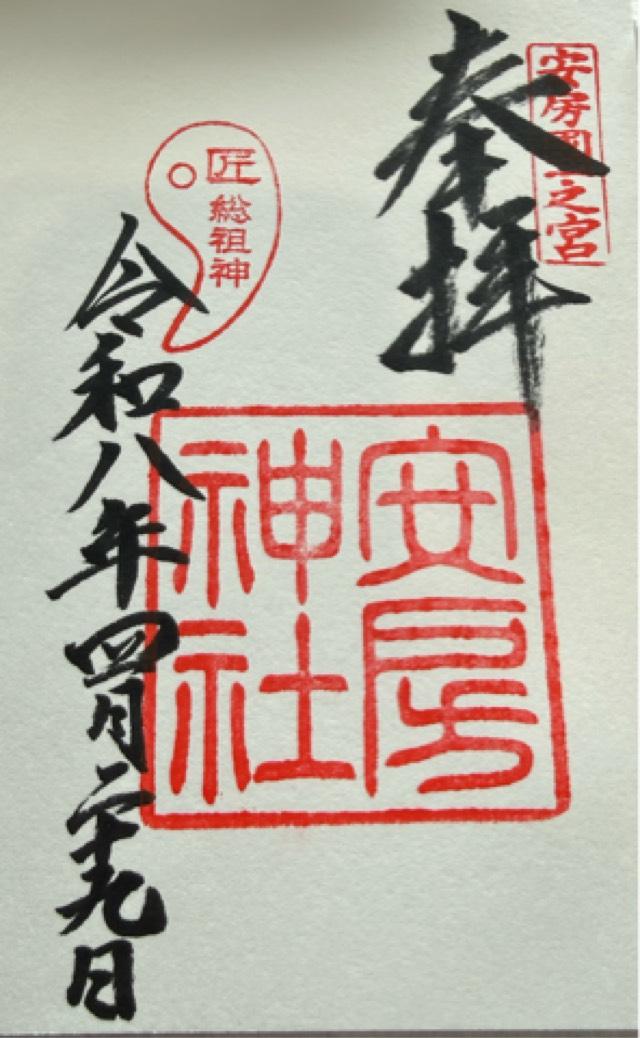 安房国一之宮
奉拝
安房
神社
匠
総祖神
令和八年四月二十九日